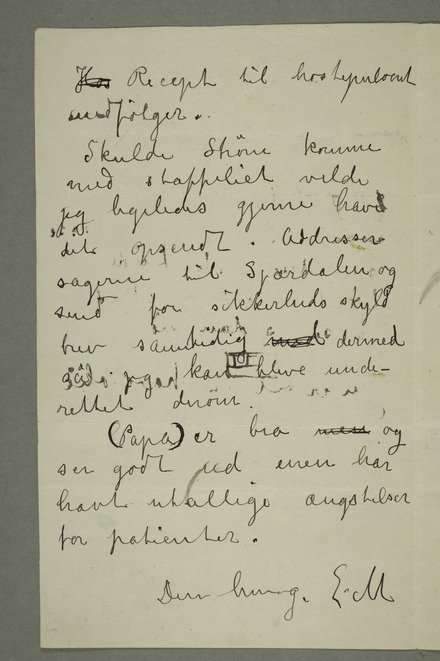 Hos Recept til hostepulveret
medfölger.
Skulde Ström komme
med staffeliet vilde
jeg ligeledes gjerne have
det opsendt. Addresser
sagerne til Sjördalen og
send for sikkerheds skyld
brev samtidig med dermed
så jeg kan blive unde-
rettet derom.
(Papa) er bra men og
ser godt ud men har
havt utallige ængstelser
for patienter.
Din hengiv. E. M